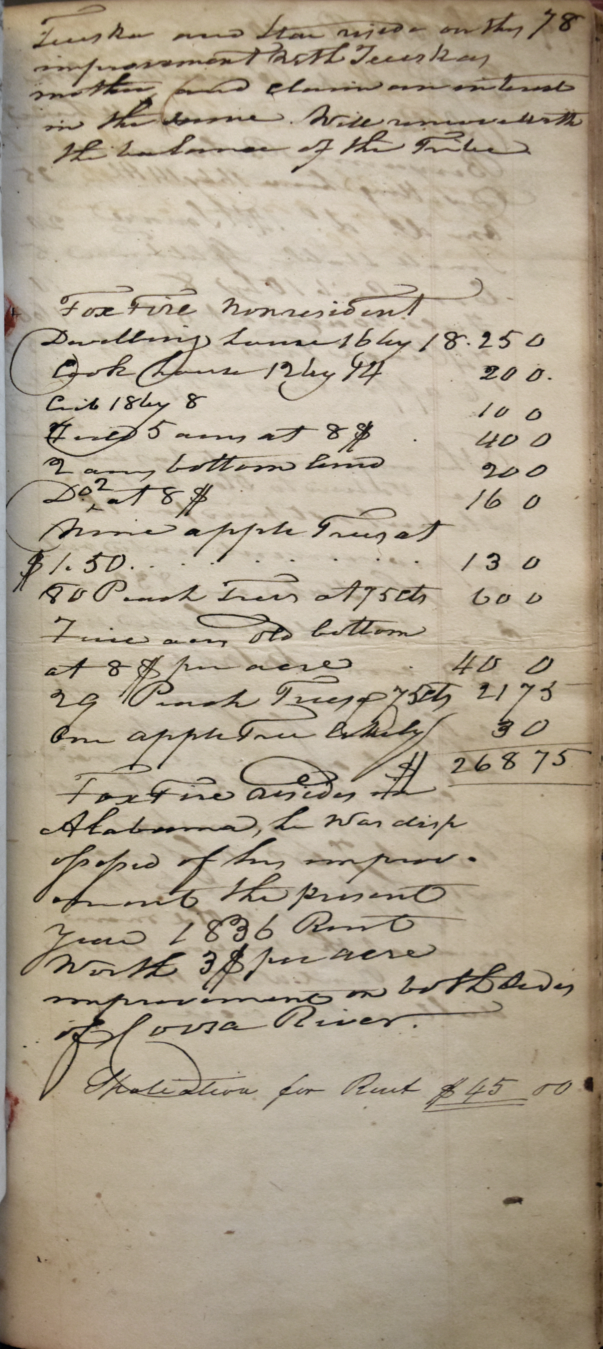 Teeska and Star reside on this 78
improvement with Teeskas
mother, and claim an interest
in the same. Will remove with
the balance of the Tribe
Fox Fire Nonresident
Dwelling house 16 by 18. 25 0
Cook house 12 by 14 20 0.
Crib 18 by 8 10 0
Field 5 acres at 8$ . 40 0
2 acres bottom land 20 0
Do 2 at 8$ 16 0
Nine apple Trees at
$1.50. . . . . . . . 13 0
80 Peach Trees at 75 cts 60 0
Five acres old bottom
at 8$ per acre . 40 0
29 Peach Trees 75 cts 21 75
One apple Tree 3 0
$ 268 75
Fox Fire resides in
Alabama, he was disp
ossessed of his improv-
ement the present
year 1836 Rent
Worth 3$ per acre
improvement on both sides
of Coosa River.
Spoliation for Rent $45 00